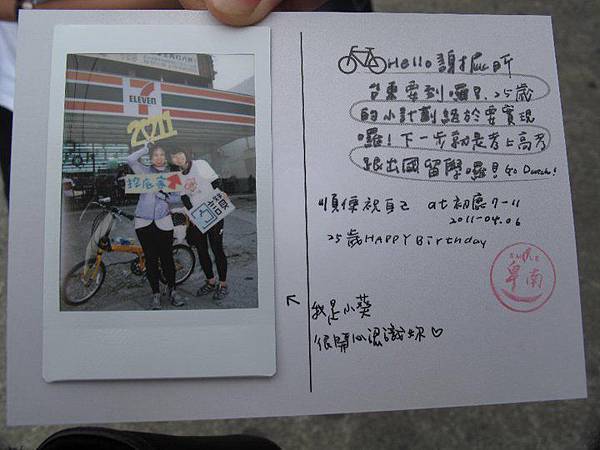 7
ELEVEN
2011
Hello 謝
台東要到囉!, 25歲
的小計劃終於要實現
囉! 下一步就是考上高考
跟出國留學囉! Go Dutch!
順便祝自己 at 初鹿 7-11
2011-04.06
25歲 HAPPY Birthday
卑南
我是小葵
很開心認識妳♡